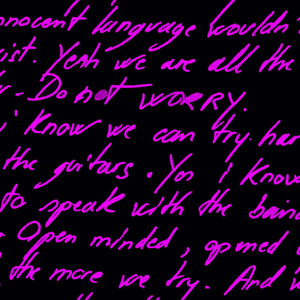 nnocent language wouldn't
xist. Yeah we are all the
- Do not WORRY.
i know we can try. har
the guitars. Yes i know
to speak with the being
- Open minded, opened
the more we try. And w